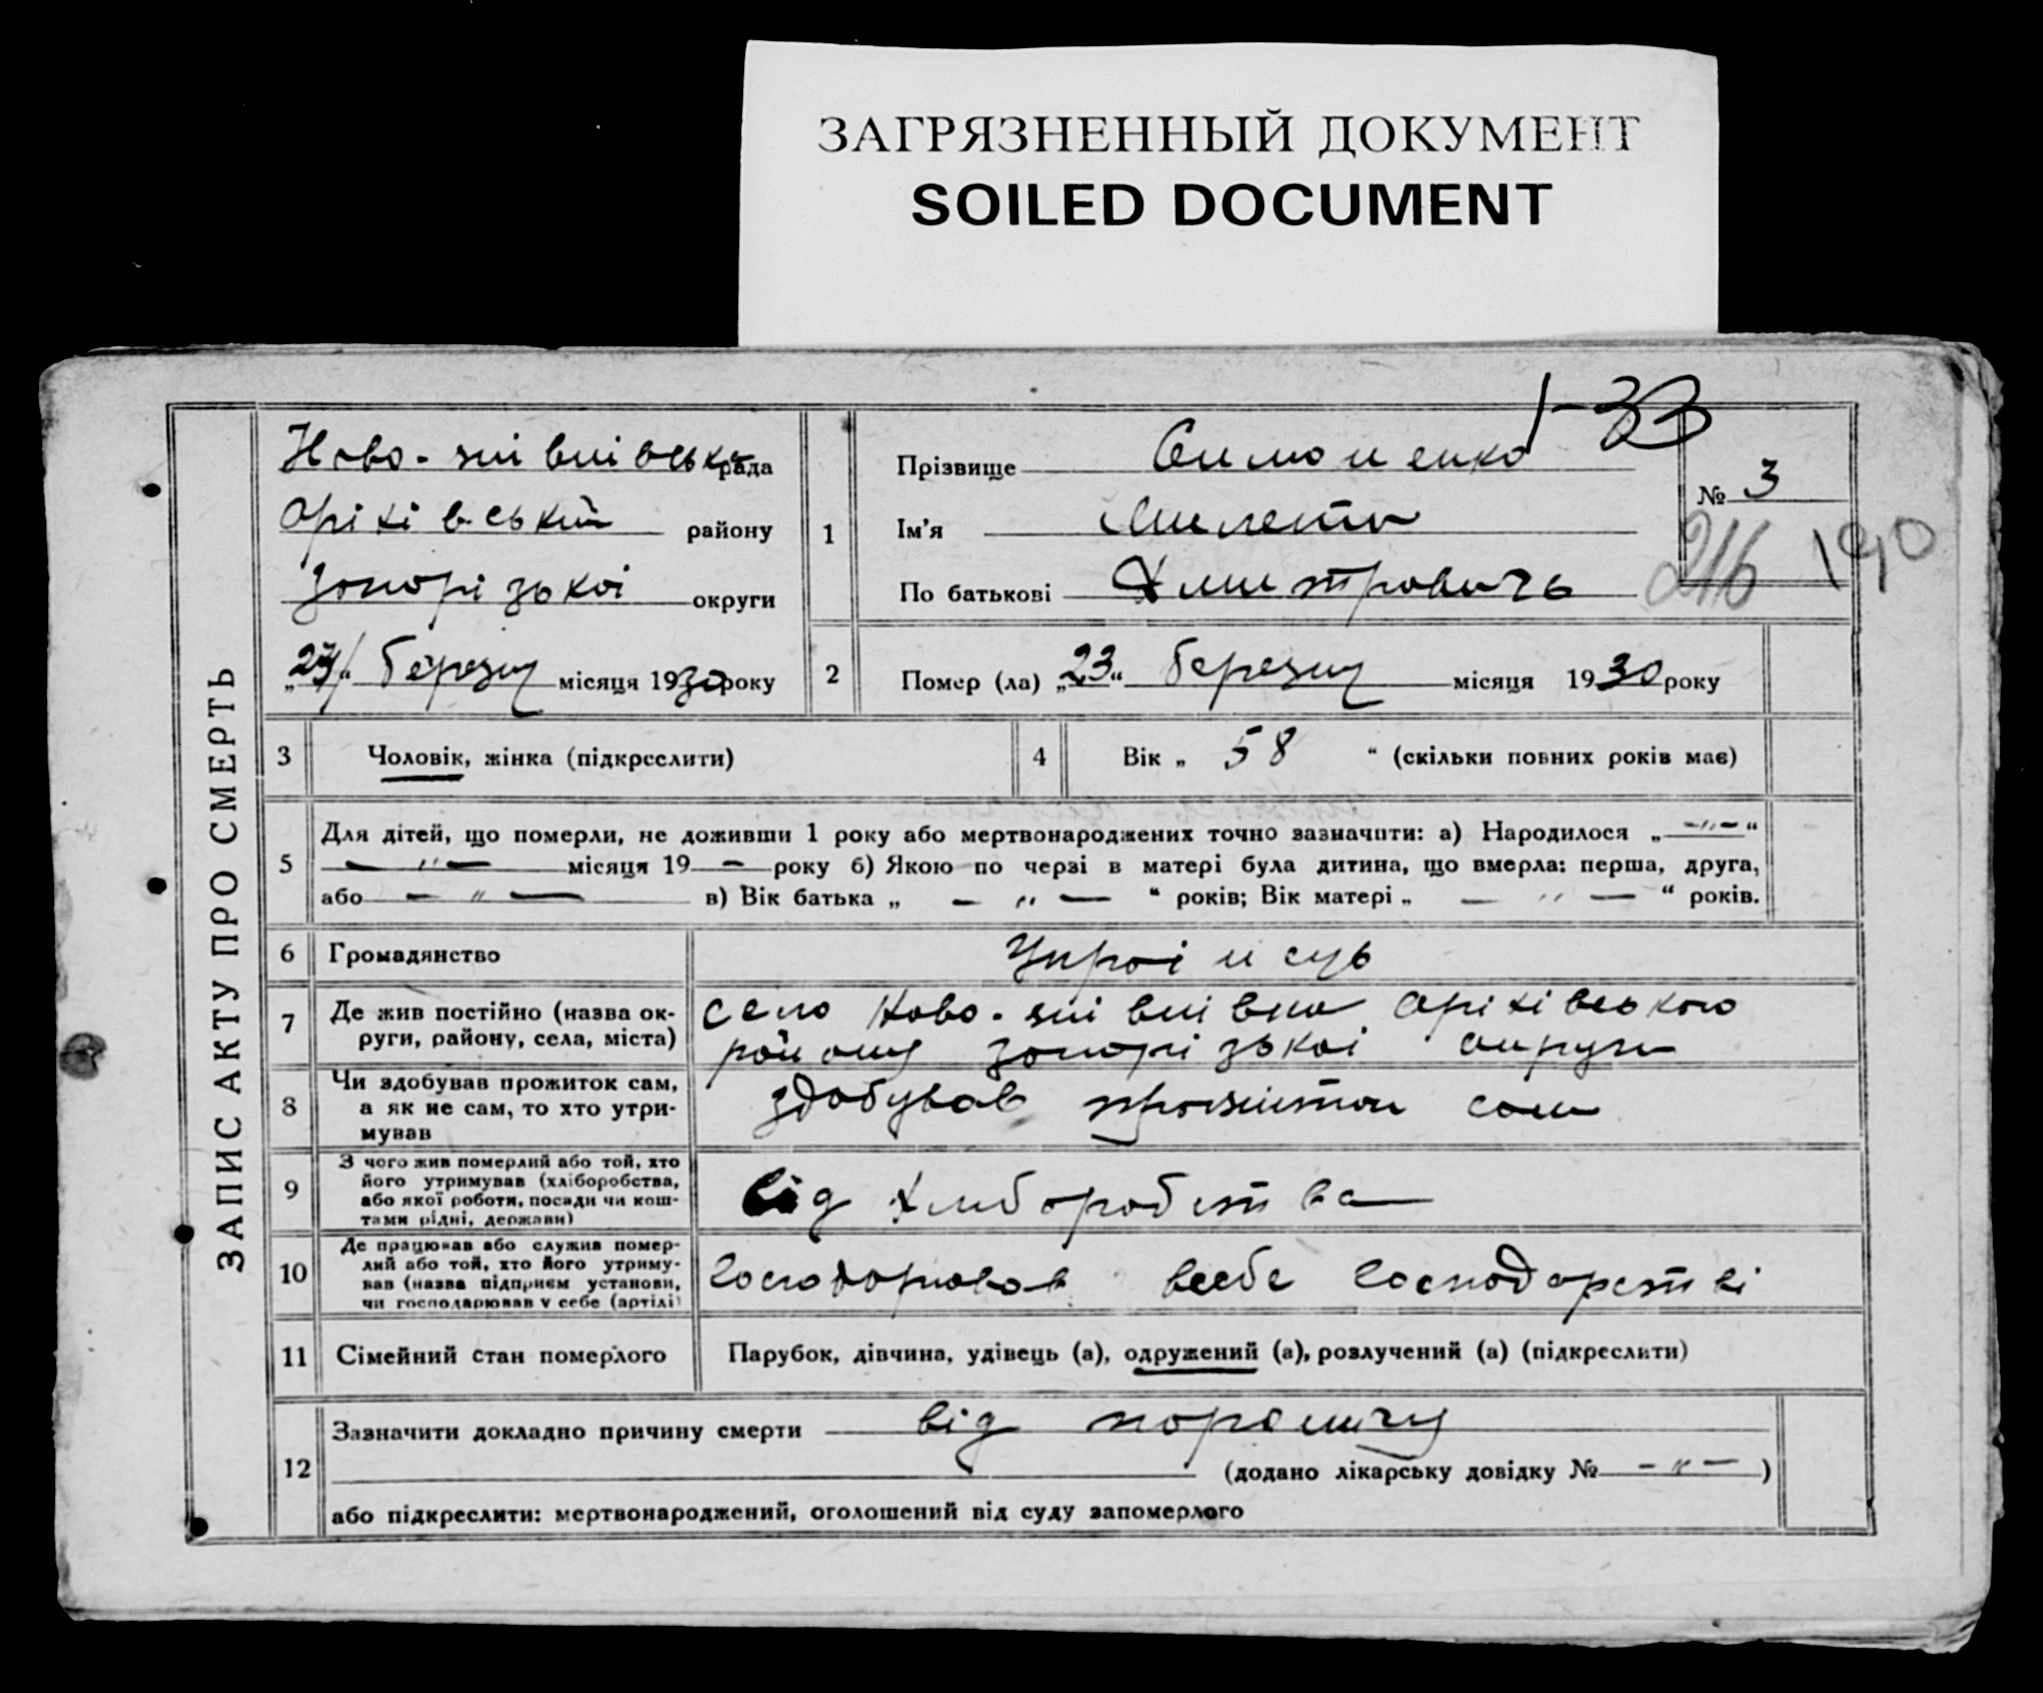 ЗАГРЯЗНЕННЫЙ ДОКУМЕНТ
SOILED DOCUMENT
1-33
ЗАПИС АКТУ ПРО СМЕРТЬ
рада
Оріхівський району
Запорізької округи
березня місяця 1930 року
1
Прізвище Симоненко
Ім'я
По батькові Дмитровичь
№ 3
216
190
2
Помер (ла) „23“ березня місяця 1930 року
3
Чоловік, жінка (підкреслити)
4
Вік „ 58 “ (скільки повних років має)
5
Для дітей, що померли, не доживши 1 року або мертвонароджених точно зазначити: а) Народилося „—"—“
— " — місяця 19 — року б) Якою по черзі в матері була дитина, що вмерла: перша, друга,
або — " — в) Вік батька „ — " — “ років; Вік матері „ — " — “ років.
6
Громадянство
Украінець
7
Де жив постійно (назва ок-
руги, району, села, міста)
село Ново- Оріхівського
району Запорізькоі округи
8
Чи здобував прожиток сам,
а як не сам, то хто утри-
мував
здобував прожиток сам
9
З чого жив померлий або той, хто
його утримував (хліборобства,
або якої роботи, посади чи кош-
тами рідні, держави)
від хлиборобства
10
Де працював або служив помер-
лий або той, хто його утриму-
вав (назва підприєм установи,
чи господарював у себе (артілі)
Господарював всебе Господарстві
11
Сімейний стан померлого
Парубок, дівчина, удівець (а), одружений (а), розлучений (а) (підкреслити)
12
Зазначити докладно причину смерти від поро
(додано лікарську довідку № - " - )
або підкреслити: мертвонароджений, оголошений від суду запомерлого